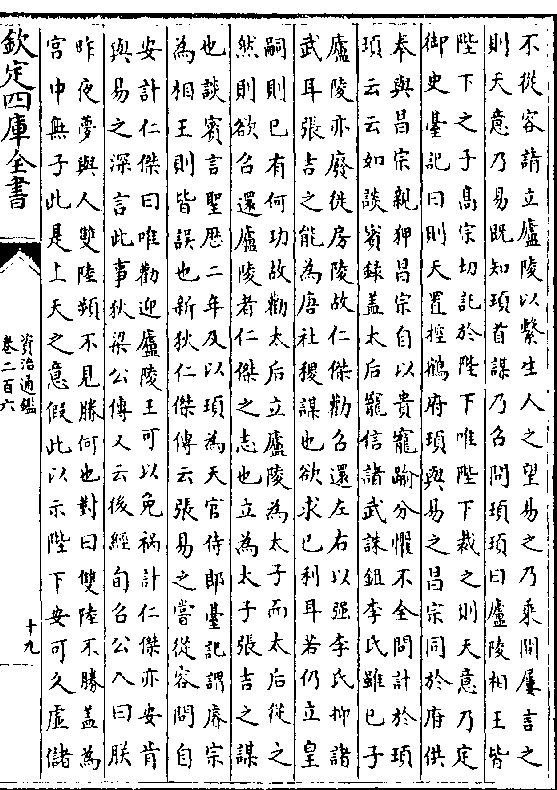 不從容請立廬陵以繫生人之望易之乃乘間屢言之
則天意乃易既知頊首謀乃召問頊頊曰廬陵相王皆
陛下之子髙宗切託於陛下唯陛下裁之則天意乃定
御史臺記曰則天置控鶴府頊與易之昌宗同於府供
奉與昌宗親狎昌宗自以貴寵踰分懼不全問計於頊
頊云云如談賓録盖太后寵信諸武誅鉏李氏雖已子
廬陵亦廢徙房陵故仁傑勸召還左右以强李氏抑諸
武耳張吉之能為唐社稷謀也欲求已利耳若仍立皇
嗣則已有何功故勸太后立廬陵為太子而太后從之
然則欲召還廬陵者仁傑之志也立為太子張吉之謀
也談賓言聖厯二年及以頊為天官侍郎臺記謂睿宗
為相王則皆誤也新狄仁傑傳云張易之嘗從容問自
安計仁傑曰唯勸迎廬陵王可以免禍計仁傑亦安肯
與易之深言此事狄梁公傳又云後經旬召公入曰朕
昨夜夢與人雙陸頻不見勝何也對曰雙陸不勝盖為
宫中無子此是上天之意假此以示陛下安可久虚儲
欽定四庫全書
資治通鑑
卷二百六
十九